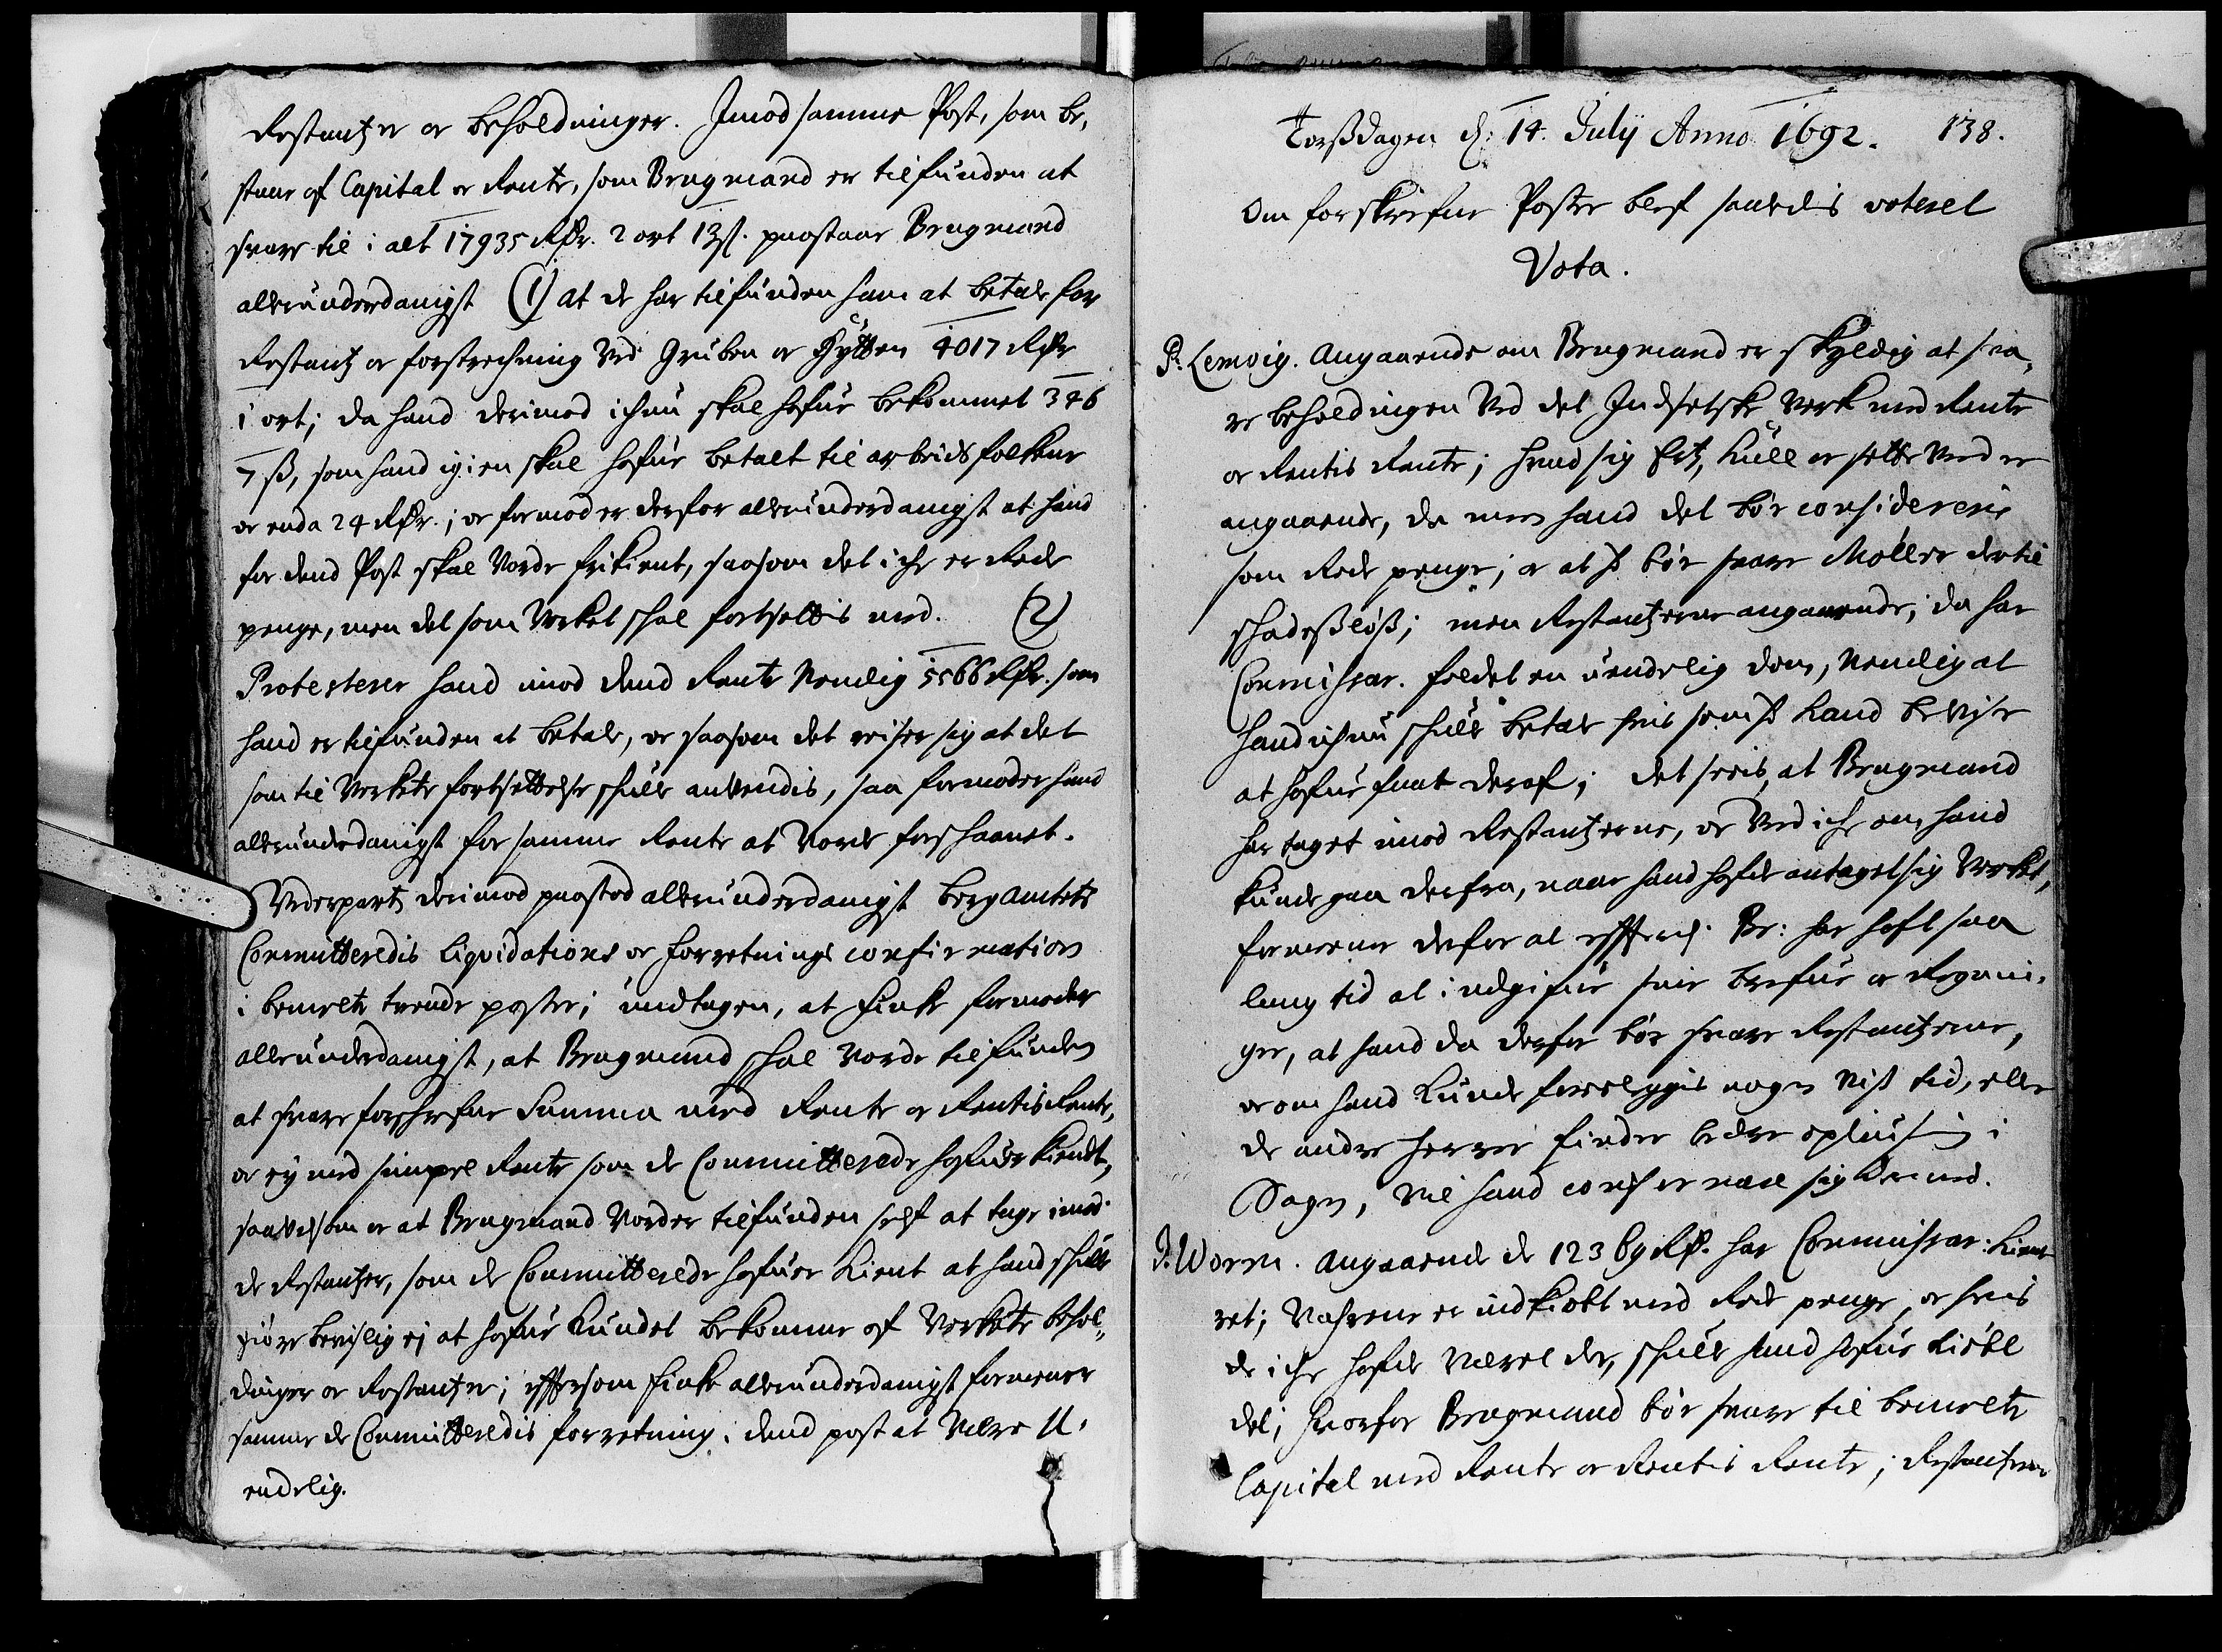 Restantzer oc beholdninger. Jmod samme Post, som be,
staar af Capital oc Rente, som Brugmand er tilfunden at
svare til i alt 17935 Rdr. 2 ort 13 s. paastaar Brugmand
allerunderdanigst (1) at de har tilfunden ham at betale for
Restantz oc forstrechning ved Gruben oc Hÿtten 4017 Rdr
1 ort; da hand derimod ichun skal hafue bekommet 346
7 ß, som hand igien skal hafue betalt til arbeidsfolkene
oc enda 24 Rdr.; oc formoder derfor allerunderdanigst at hand
for dend Post skal vorde frikient, saasom det iche er Rede
penge, men det som Verket skal fortsettis med. (2)
Protesterer hand imod dend Rente Nemlig 5566 Rdr. som
hand er tilfunden at betale, oc saasom det viser sig at det
som til Verkets fortsettelse skulle anvendis, saa formoder hand
allerunderdanigst for samme Rente at vorde forskaanet.
Vederpart derimod paastod allerunderdanigst berg Amtets
Committeredis Liqvidations oc forretnings confirmation
i bemelte trende poster; undtagen, at Finke formoder
allerunderdanigst, at Brugmand skal vorde tilfunden
at svare forschrefne Summa med Rente oc Rentis Rente,
oc ej med simpel Rente som de Committerede hafver kiendt,
saavelsom oc at Brugmand vorder tilfunden self at tage imod
de Restantzer, som de Committerede hafuer kient at hand skulle
giøre bevislig ej at hafue kundet bekomme af Verkets behol„
dinger oc Restantzer; eftersom Finke allerunderdanigst formener
samme de Committeredis forretning i dend post at være U,
endelig.
Torßdagen d: 14. Julij Anno 1692. 138.
Om forskrefne Poster blef saaledis voteret
Vota.
P. Lemvig. Angaaende om Brugmand er skyldig at sva,
re beholdingen ved det Indsetske Verk med Rente
oc Rentis Rente; hvad sig Ertz, kull oc sette ved er
angaaende, da meen hand det bør considereris
som Rede penge; oc at hand bør svare Møller dertil
schadeßløß; men Restantzerne angaaende, da har
Commissar. feldet en uendelig dom, Nemlig at
hand ichun skulle betale hvis som hand kand bevise
at hafue faaet deraf; det sees, at Brugmand
har taget imod Restantzerne, oc ved iche om hand
kunde gaa derfra, naar hand hafde antaget sig Verket,
formener derfor at effterd. Br: har haft saa
lang tid at indgifue sine brefue oc Regnin,
ger, at hand da derfor bør svare Restantzerne,
oc om hand kunde forelegges nogen viß tid, eller
de andre herrer finder bedre oplysning i
Sagen, vil hand conformere sig dermed.
J. Worm. Angaaende de 12369 Rdr. har Commissar: kient
ret; Vahrene er indkiøbt med Rede penge, oc hvis
de iche hafde været der, skulle hand hafue kiøbt
det; hvorfor Brugmand bør svare til bemelte
Capital med Rente oc Rentis Rente; Restantzerne